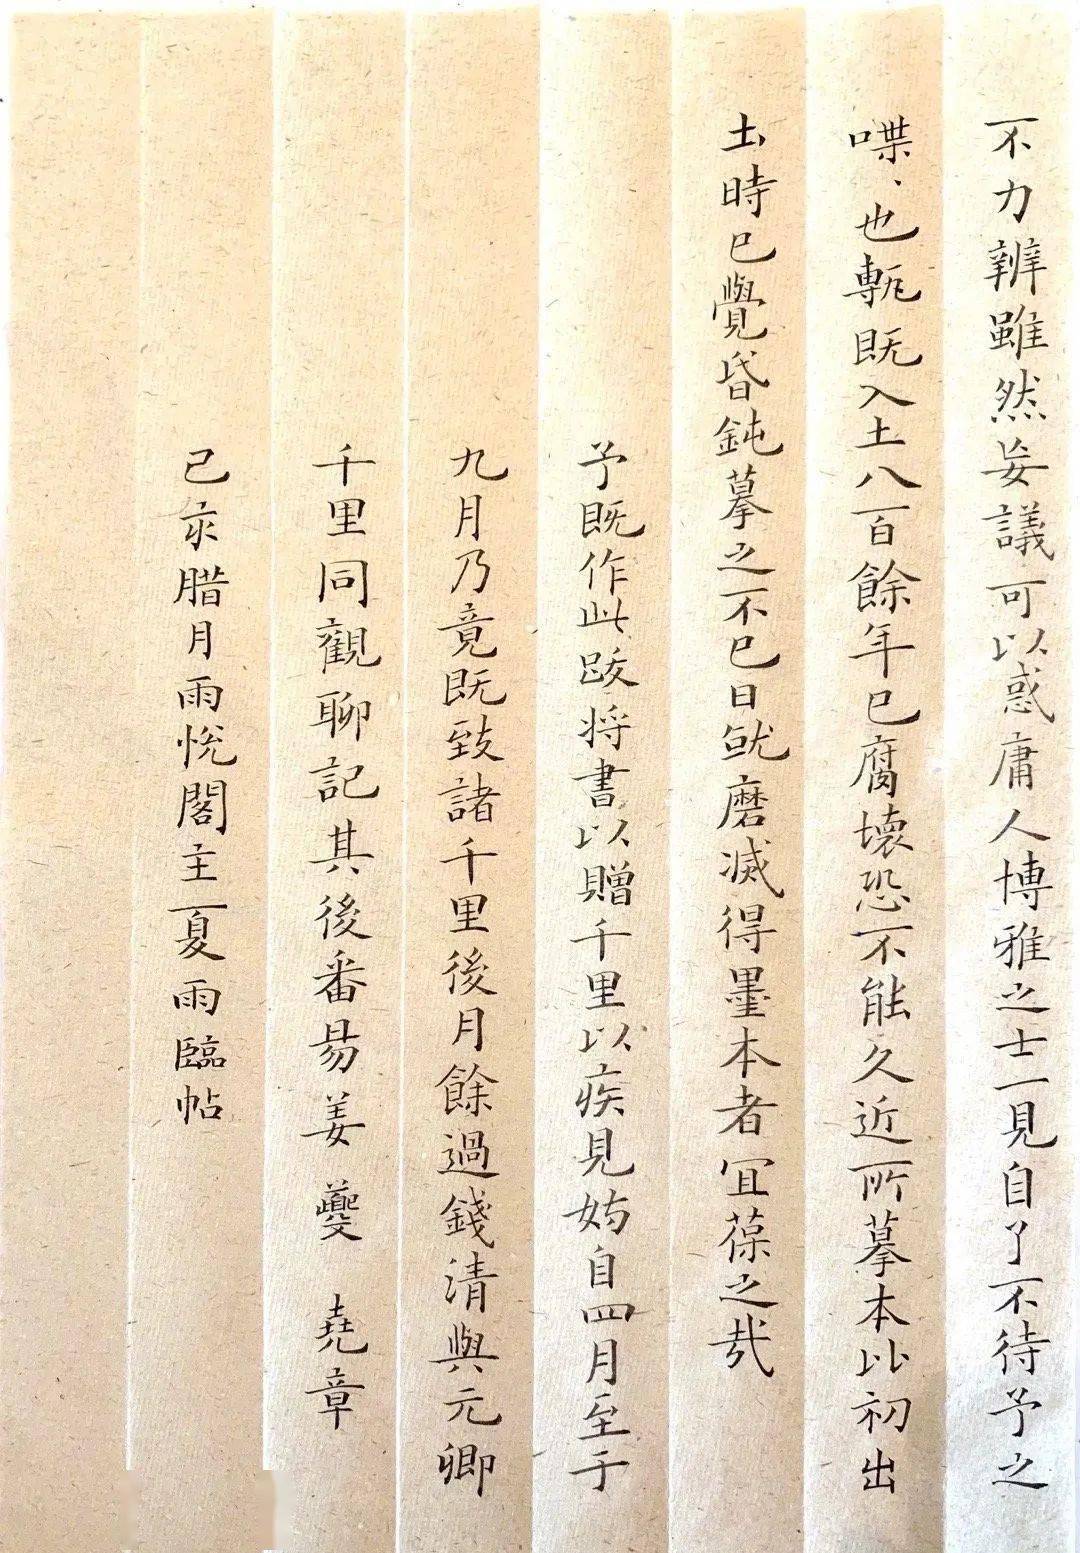 不力辨雖然妄議可以惑庸人博雅之士一見自了不待予之
喋、也甎既入土八百餘年已腐壞恐不能久近所摹本比初出
土時已覺昏鈍摹之不已日就磨滅得墨本者宜葆之哉
予既作此跋将書以贈千里以疾見妨自四月至于
九月乃竟既致諸千里後月餘過錢清與元卿
千里同觀聊記其後番昜姜夔 堯章
己亥腊月雨悅閣主夏雨臨帖